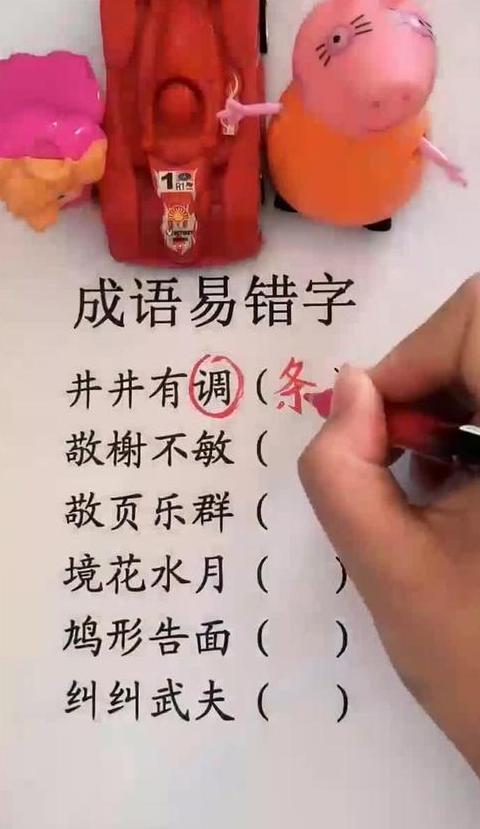 1
成语易错字
井井有调（条
敬榭不敏（
敬页乐群（
境花水月（ ）
鸠形告面（ ）
纠纠武夫（ ）